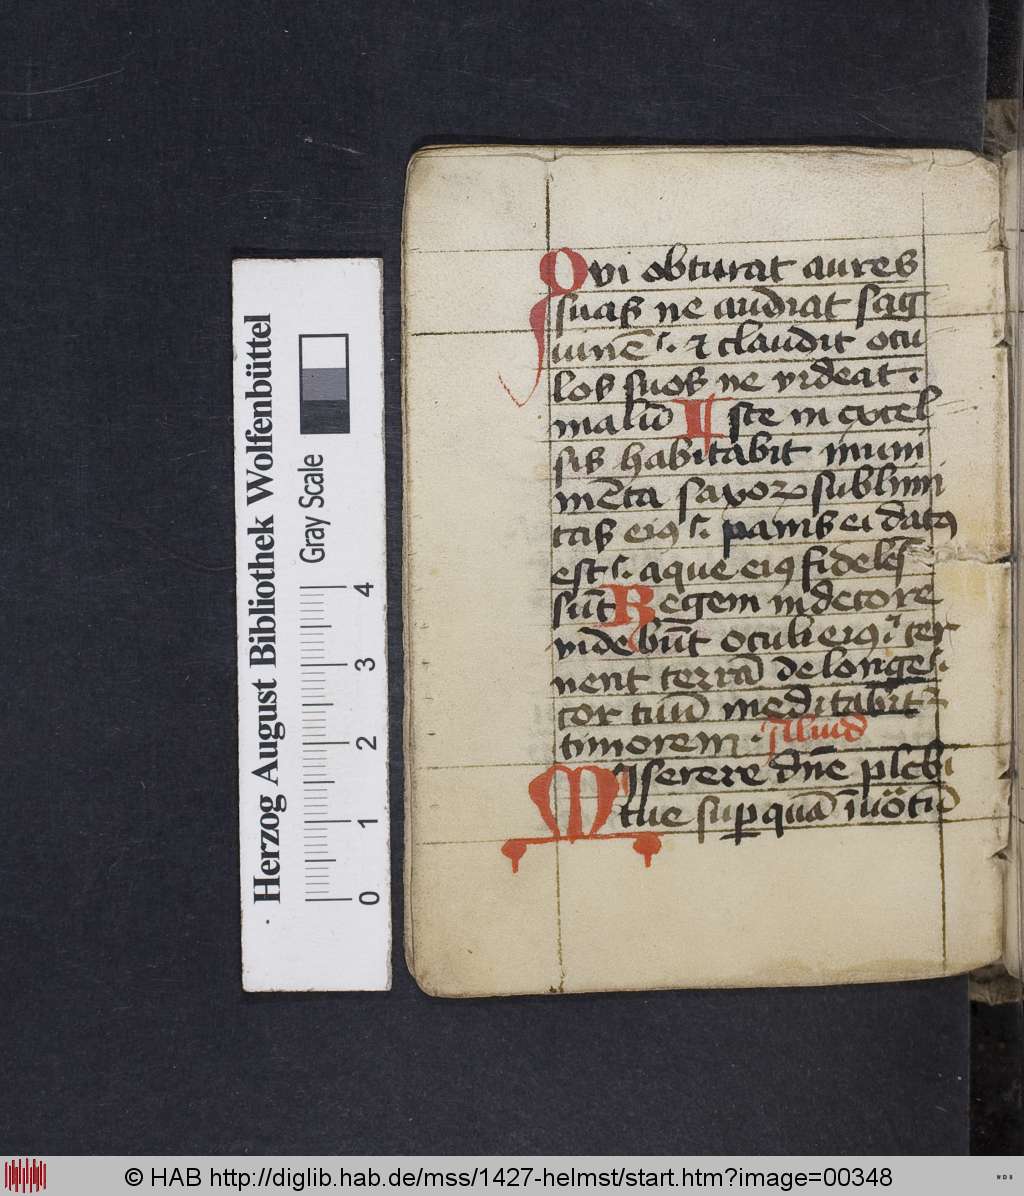 Qui obturat aures
suas ne audiat sag
uinē. ⁊ claudit ocu
los suos ne videat.
malū Iste in excel
sis habitabit muni
mēta saxoꝝ sublimi
tas eiꝰ. panis ei datꝰ
est. aque eiꝰ fideles
sūt Regem in decore
videbūt oculi eiꝰ. cer
nent terrā de longe.
cor tuū meditabit᷑
timorem. Aliud
Miserere dn̄e plebi
tue sup quā īuocatū
Herzog August Bibliothek Wolfenbüttel
Gray Scale
0 1 2 3 4
© HAB http://diglib.hab.de/mss/1427-helmst/start.htm?image=00348